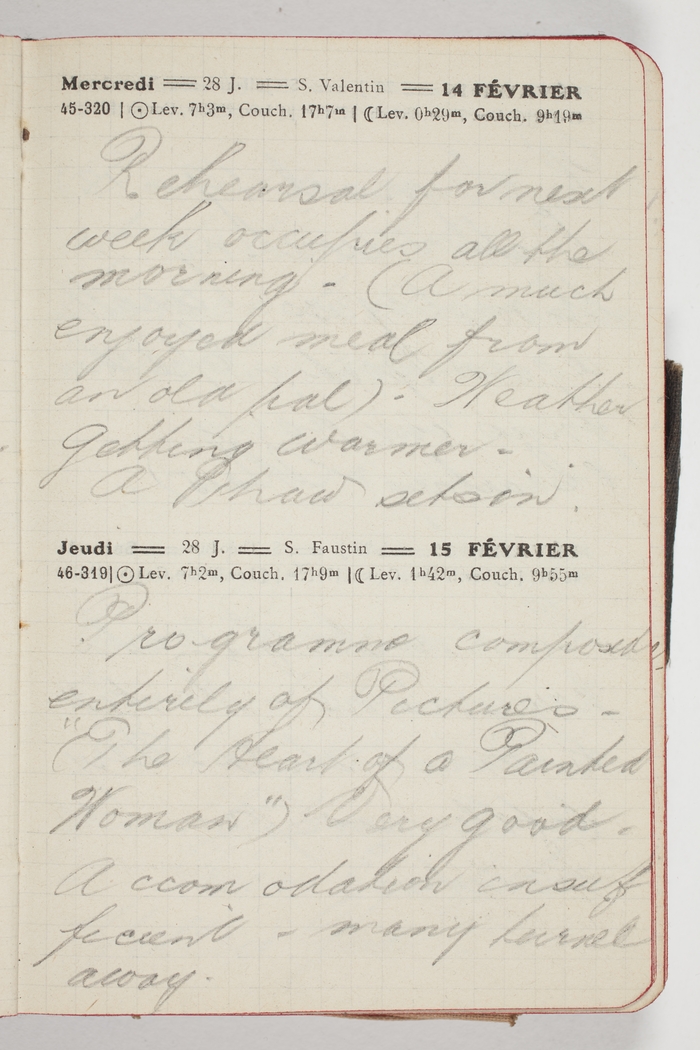 Mercredi == 28 J. == S. Valentin == 14 FÉVRIER
45-320 | ☉ Lev. 7h3m, Couch. 17h7m | ☾ Lev. 0h29m, Couch. 9h19m
Rehearsal for next
week occupies all the
morning - (A much
enjoyed meal from
an old pal). Weather
getting warmer -
A Thaw sets in.
Jeudi == 28 J. == S. Faustin == 15 FÉVRIER
46-319 | ☉ Lev. 7h2m, Couch. 17h9m | ☾ Lev. 1h42m, Couch. 9h55m
Programme composed
entirely of Pictures -
("The Heart of a Painted
Woman") Very good -
Accomodation insuf
ficient - many turned
away.